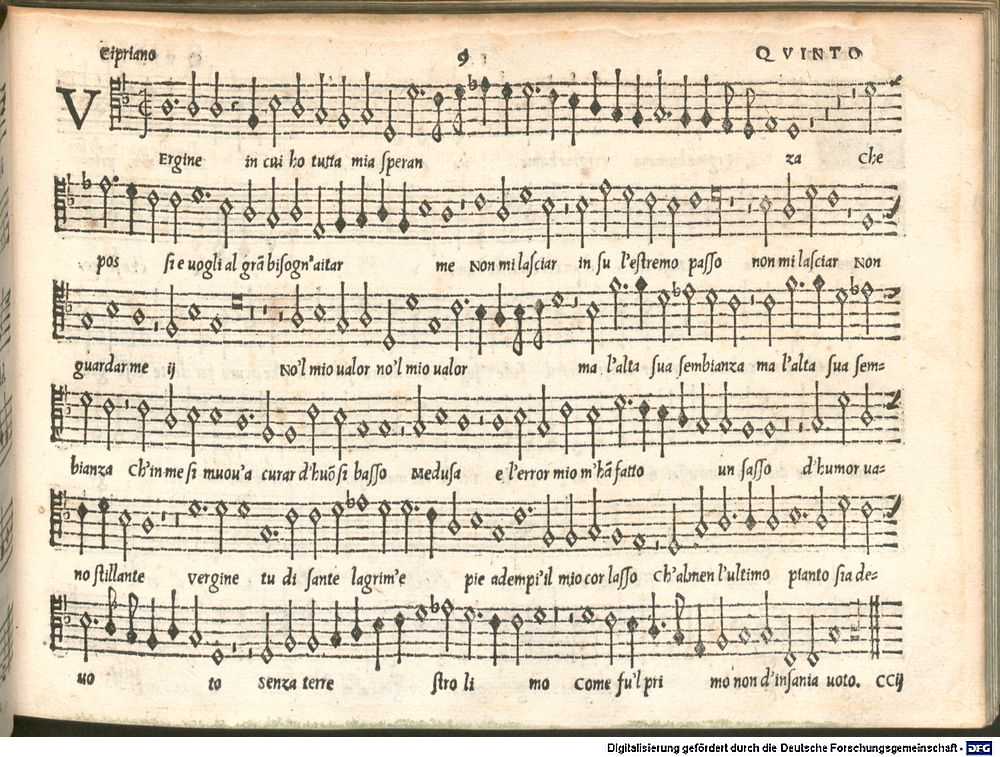 Cipriano 9 QVINTO
VErgine in cui ho tutta mia speran za Che
pos si e uogli al grã bisogn'aitar me Non mi lasciar in su l'estremo passo non mi lasciar Non
guardar me ij No'l mio ualor no'l mio ualor ma l'alta sua sembianza ma l'alta sua sem=
bianza Ch'in me si muou'a curar d'huõ si basso Medusa e l'error mio m'hã fatto un sasso d'humor ua=
no stillante vergine tu di sante lagrim'e pie adempi'il mio cor lasso Ch'almen l'ultimo pianto sia de=
uo to Senza terre stro li mo Come fu'l pri mo non d'insania uoto. CCij
Digitalisierung gefördert durch die Deutsche Forschungsgemeinschaft - DFG